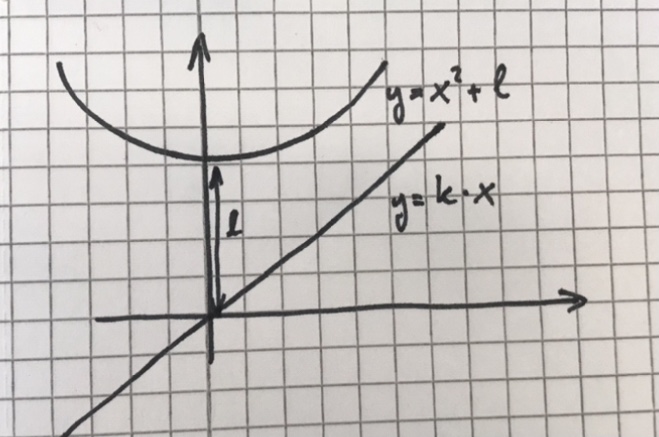 y=x²+l
y=k·x
l